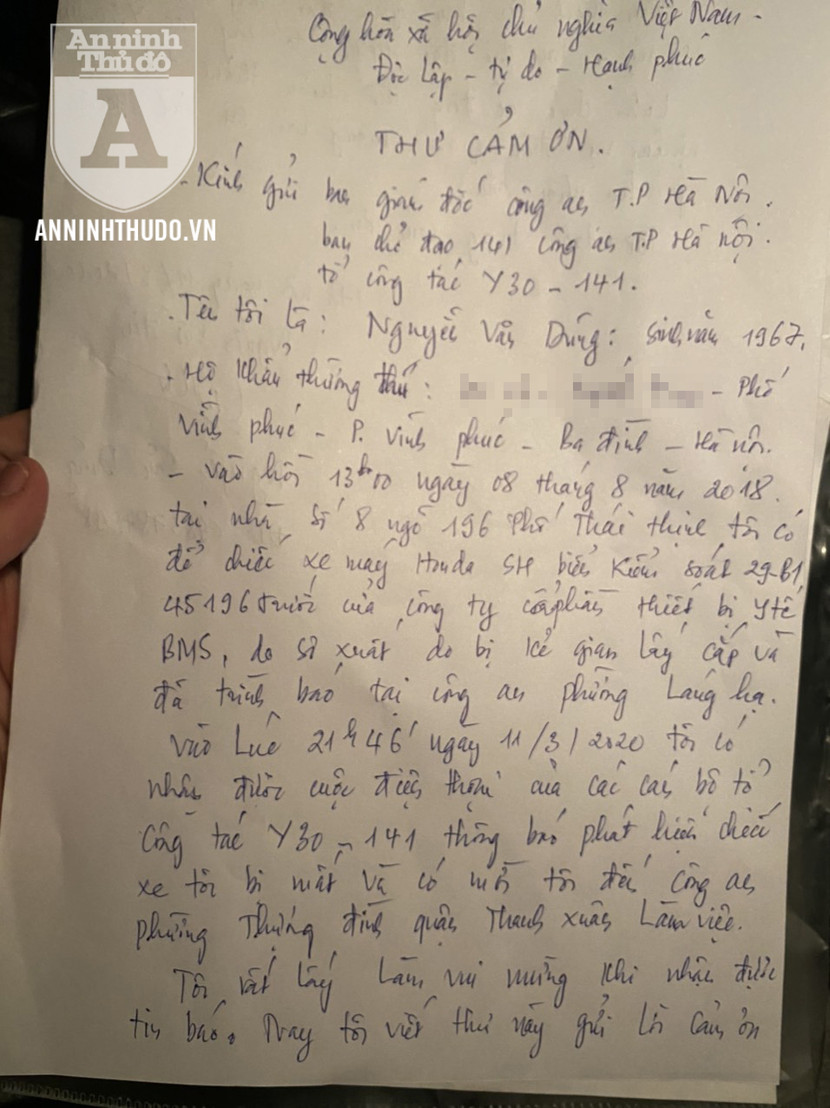 An ninh
Thủ đô
A
ANNINHTHUDO.VN
Cộng hòa xã hội chủ nghĩa Việt Nam -
Độc lập - tự do - Hạnh phúc
THƯ CẢM ƠN.
- Kính gửi ban giám đốc công an T.P Hà Nội.
ban chỉ đạo 141 công an T.P Hà nội.
tổ công tác Y30 - 141.
. Tên tôi là: Nguyễn Văn Dũng: sinh năm 1967.
+ Hộ khẩu thường thú: - Phố
Vĩnh phúc - P. Vĩnh phúc - Ba đình - Hà nội.
- Vào hồi 13h00 ngày 08 tháng 8 năm 2018.
tại nhà số 8 ngõ 196 phố Thái thịnh tôi có
để chiếc xe máy Honda SH biển kiểm soát 29-B1
45196 trước cửa công ty cổ phần thiết bị y tế
BMS, do sơ xuất do bị kẻ gian lấy cắp và
đã trình báo tại công an phường Láng hạ.
Vào Lúc 21h46' ngày 11/3/2020 tôi có
nhận được cuộc điện thoại của các cán bộ tổ
công tác Y30 - 141 thông báo phát hiện chiếc
xe tôi bị mất và có mời tôi đến công an
phường Thượng đình quận Thanh xuân Làm việc.
Tôi rất lấy Làm vui mừng khi nhận được
tin báo. Nay tôi viết thư này gửi lời cảm ơn